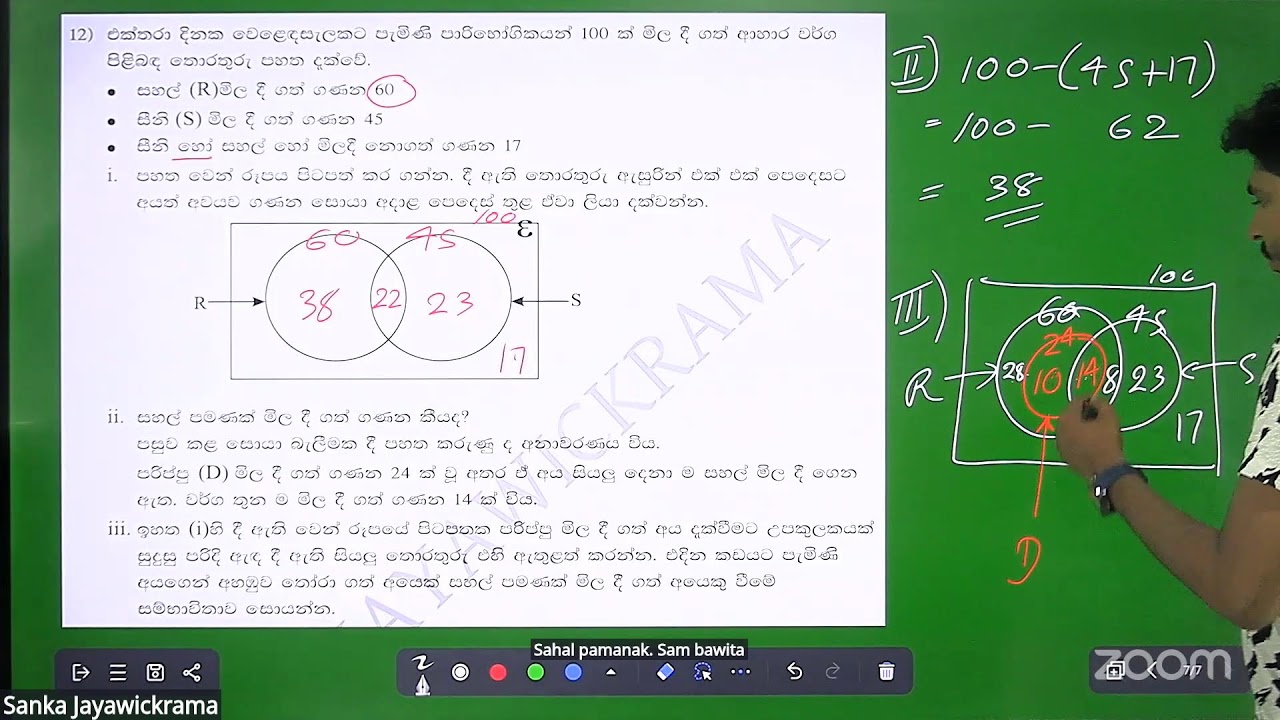 12) එක්තරා දිනක වෙළෙඳසැලකට පැමිණි පාරිභෝගිකයන් 100 ක් මිල දී ගත් ආහාර වර්ග
පිළිබඳ තොරතුරු පහත දැක්වේ.
• සහල් (R)මිල දී ගත් ගණන 60
• සීනි (S) මිල දී ගත් ගණන 45
• සීනි හෝ සහල් හෝ මිලදී නොගත් ගණන 17
i. පහත වෙන් රූපය පිටපත් කර ගන්න. දී ඇති තොරතුරු ඇසුරින් එක් එක් පෙදෙසට
අයත් අවයව ගණන සොයා අදාළ පෙදෙස් තුළ ඒවා ලියා දක්වන්න.
100
ε
60 45
R 38 22 23 S
17
ii. සහල් පමණක් මිල දී ගත් ගණන කීයද?
පසුව කළ සොයා බැලීමක දී පහත කරුණු ද අනාවරණය විය.
පරිප්පු (D) මිල දී ගත් ගණන 24 ක් වූ අතර ඒ අය සියලු දෙනා ම සහල් මිල දී ගෙන
ඇත. වර්ග තුන ම මිල දී ගත් ගණන 14 ක් විය.
iii. ඉහත (i)හි දී ඇති වෙන් රූපයේ පිටපතක පරිප්පු මිල දී ගත් අය දැක්වීමට උපකුලකයක්
සුදුසු පරිදි ඇඳ දී ඇති සියලු තොරතුරු එහි ඇතුළත් කරන්න. එදින කඩයට පැමිණි
අයගෙන් අහඹුව තෝරා ගත් අයෙක් සහල් පමණක් මිල දී ගත් අයෙකු වීමේ
සම්භාවිතාව සොයන්න.
JAYAWICKRAMA
II) 100-(45+17)
= 100- 62
= 38
III) 100
60 45
24
R 28 10 14 8 23 S
17
D
Sahal pamanak. Sam bawita
zoom
7/7
Sanka Jayawickrama